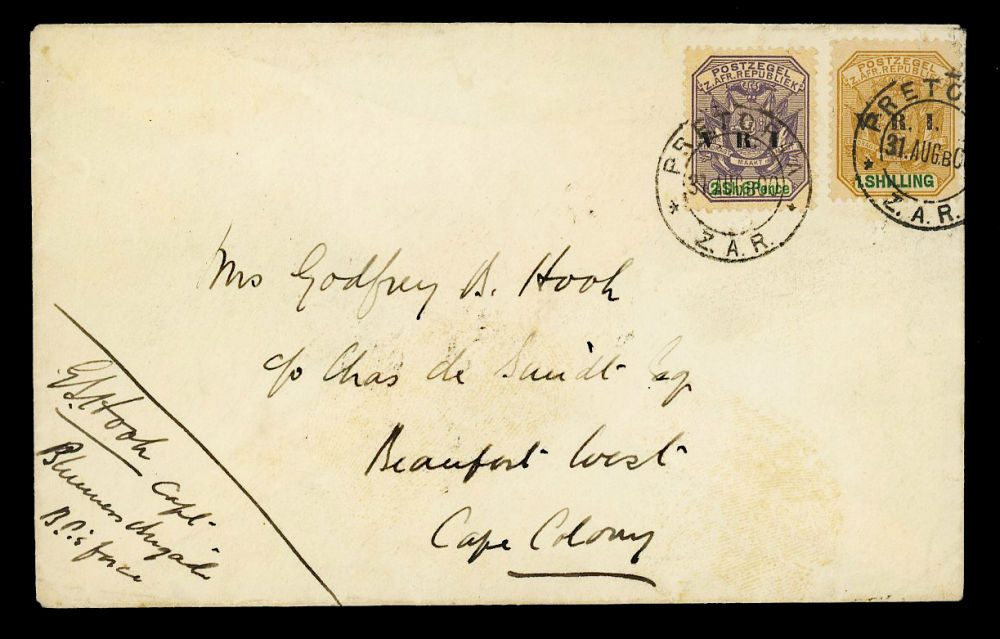 POSTZEGEL
Z. AFR. REPUBLIEK
V. R. I.
2 Sh. 6 Pence
PRETORIA
31. AUG. 00
Z. A. R.
POSTZEGEL
Z. AFR. REPUBLIEK
V. R. I.
1 SHILLING
PRETO
31. AUG.
Z. A. R.
Mrs Godfrey B. Hook
c/o Chas de Smidt Esq
Beaufort West
Cape Colony
GB Hook
Capt
B.P.'s force